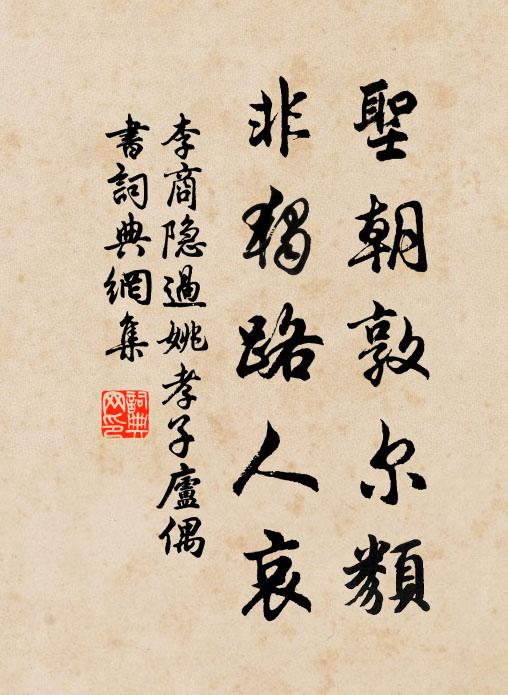 聖朝敦尔類
非獨路人哀
李商隐過姚孝子廬偶
書詞典網集
詞典网印